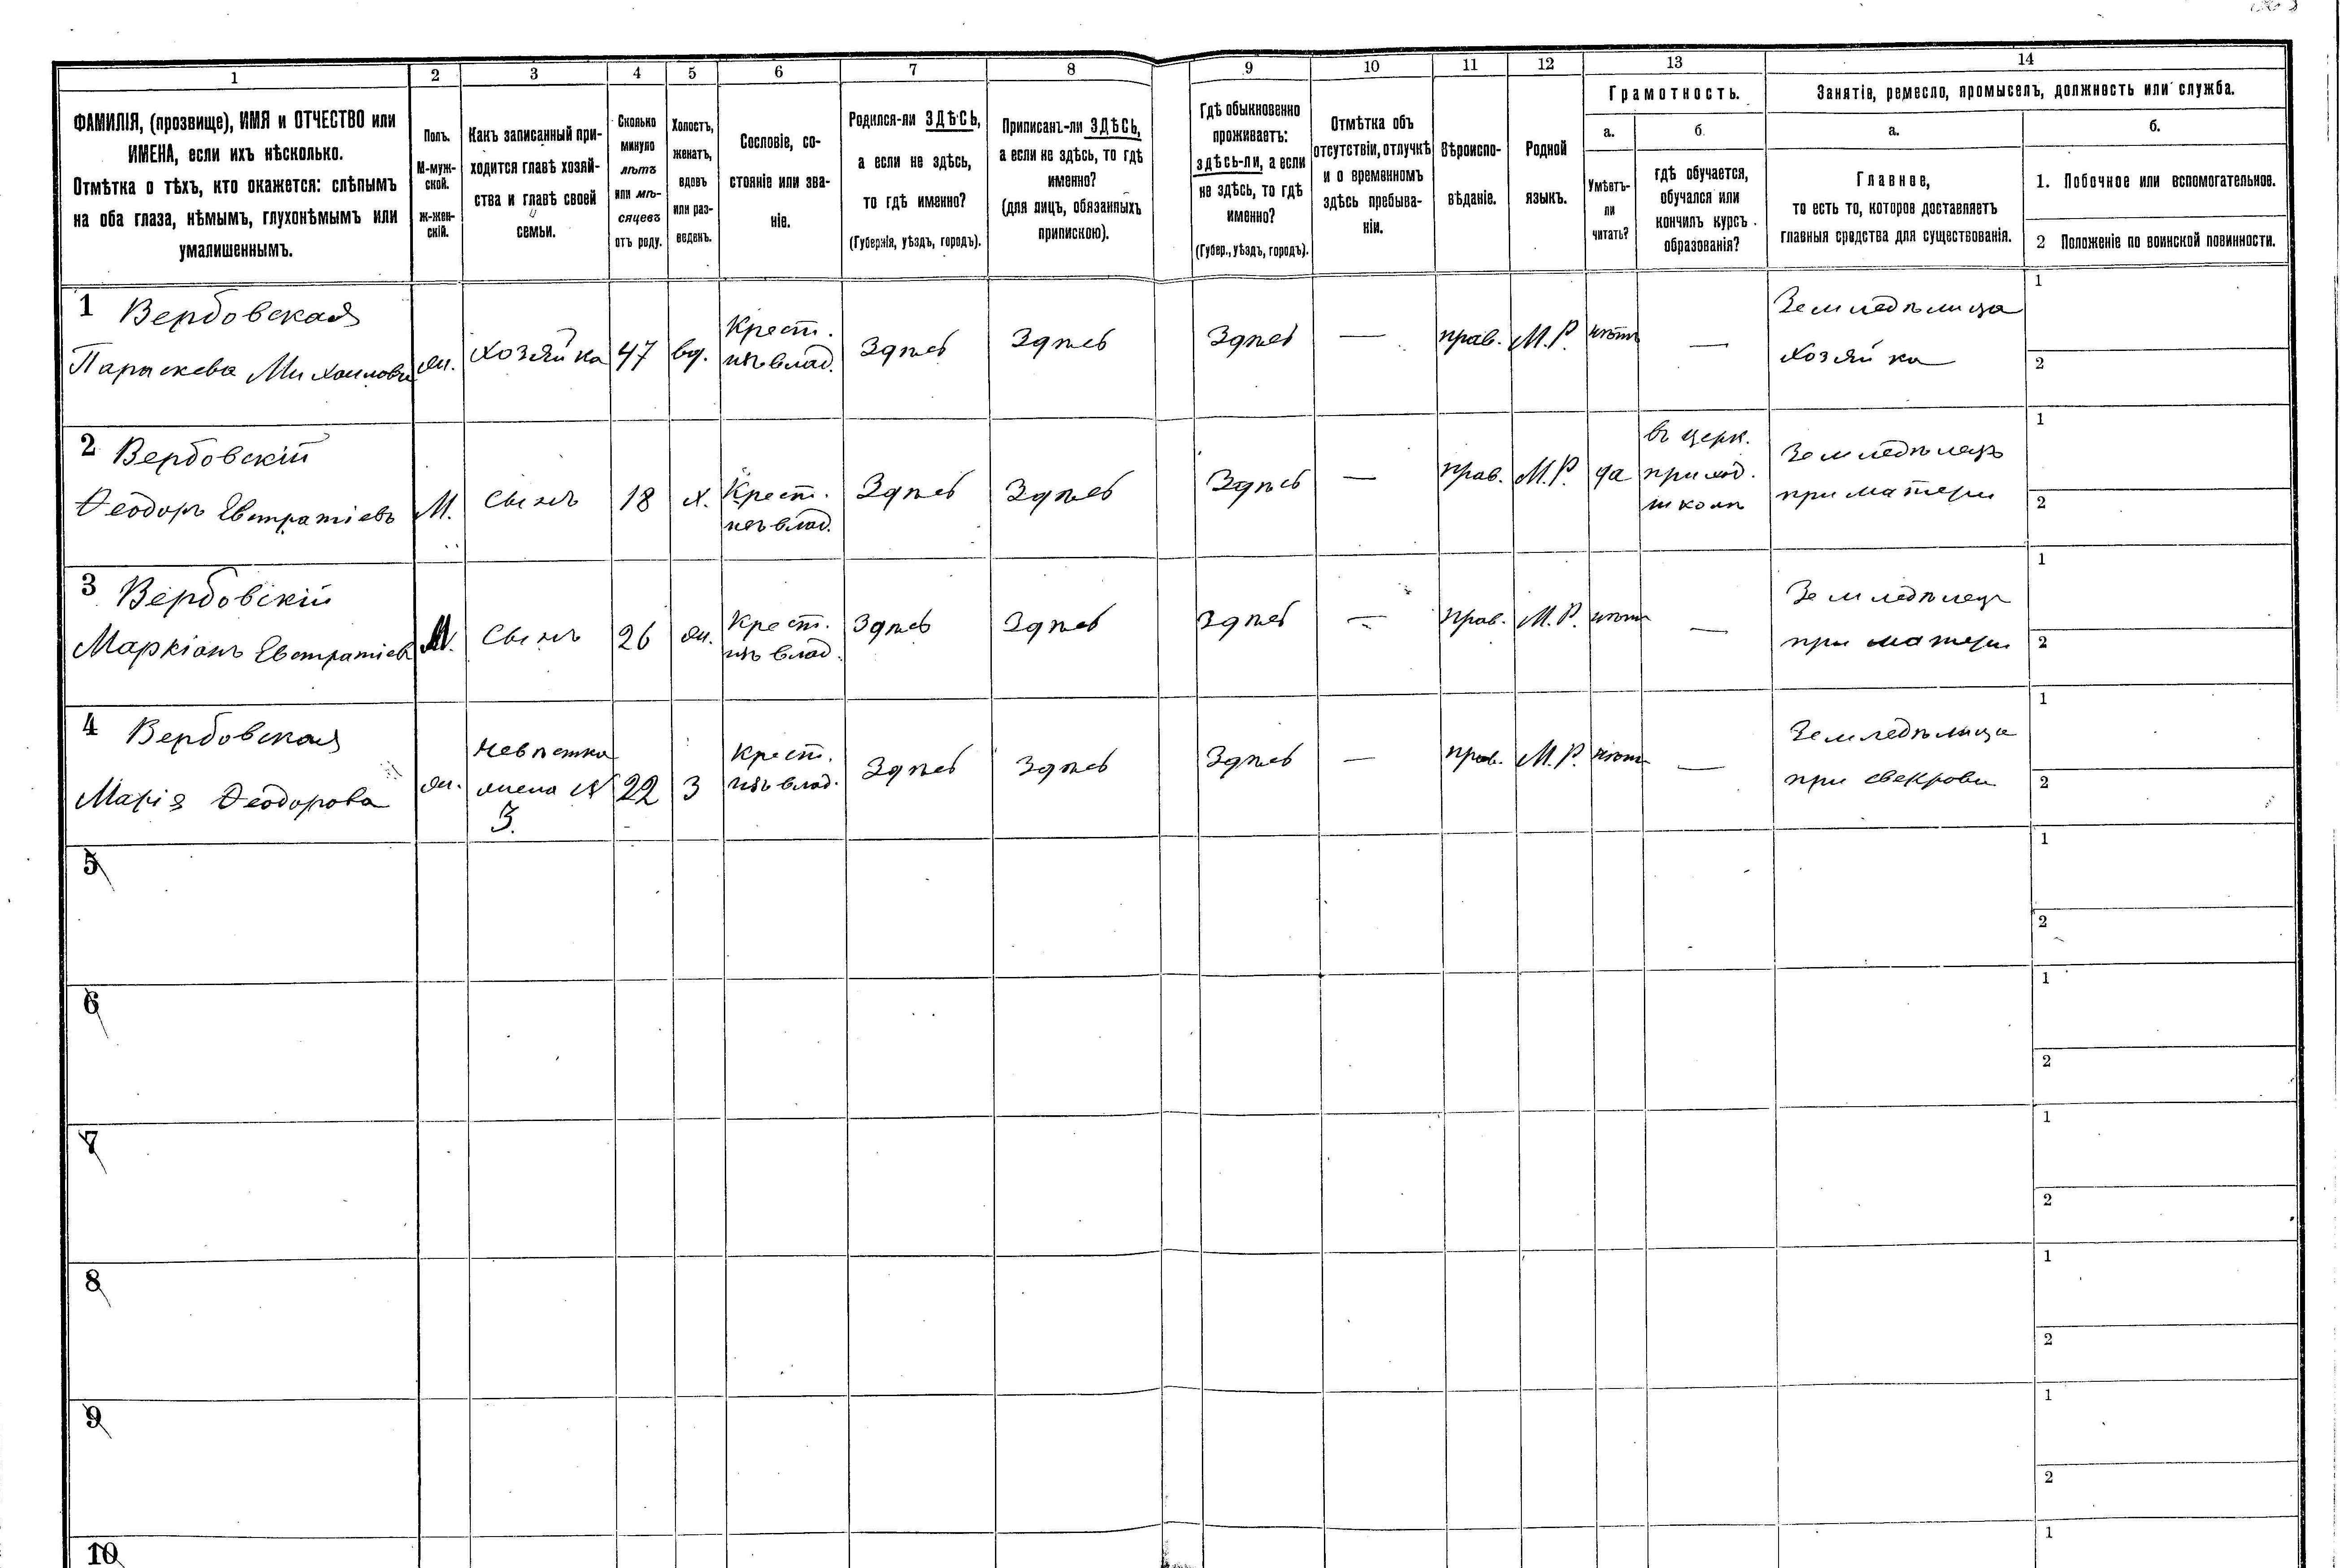 1 2 3 4 5 6 7 8 9 10 11 12 13 14
ФАМИЛІЯ, (прозвище), ИМЯ и ОТЧЕСТВО или
ИМЕНА, если ихъ нѣсколько.
Отмѣтка о тѣхъ, кто окажется: слѣпымъ
на оба глаза, нѣмымъ, глухонѣмымъ или
умалишеннымъ.
Полъ.
М-муж-
ской.
ж-жен-
скій.
Какъ записанный при-
ходится главѣ хозяй-
ства и главѣ своей
семьи.
Сколько
минуло
лѣтъ
или мѣ-
сяцевъ
отъ роду.
Холостъ,
женатъ,
вдовъ
или раз-
веденъ.
Сословіе, со-
стояніе или зва-
ніе.
Родился-ли ЗДѢСЬ,
а если не здѣсь,
то гдѣ именно?
(Губернія, уѣздъ, городъ).
Приписанъ-ли ЗДѢСЬ,
а если не здѣсь, то гдѣ
именно?
(для лицъ, обязанныхъ
припискою).
Гдѣ обыкновенно
проживаетъ:
здѣсь-ли, а если
не здѣсь, то гдѣ
именно?
(Губер., уѣздъ, городъ).
Отмѣтка объ
отсутствіи, отлучкѣ
и о временномъ
здѣсь пребыва-
ніи.
Вѣроиспо-
вѣданіе.
Родной
языкъ.
Грамотность.
а.
Умѣетъ-
ли
читать?
б.
гдѣ обучается,
обучался или
кончилъ курсъ
образованія?
Занятіе, ремесло, промыселъ, должность или служба.
а.
Главное,
то есть то, которое доставляетъ
главныя средства для существованія.
б.
1. Побочное или вспомогательное.
2 Положеніе по воинской повинности.
1 Вербовская
Параскева Михаилова
ж.
Хозяйка
47
вд.
Крест.
изъ влад.
Здѣсь
Здѣсь
Здѣсь
—
прав.
М.Р.
нѣтъ
—
Земледѣлица
хозяйка
1
2
2 Вербовскій
Ѳеодоръ Евстратіевъ
М.
сынъ
18
х.
Крест.
изъ влад.
Здѣсь
Здѣсь
Здѣсь
—
прав.
М.Р.
да
въ церк.
приход.
школѣ
Земледѣлецъ
при матери
1
2
3 Вербовскій
Маркіанъ Евстратіев
М.
Сынъ
26
ж.
Крест.
изъ влад.
Здѣсь
Здѣсь
Здѣсь
—
прав.
М.Р.
нѣтъ
—
Земледѣлец
при матери
1
2
4 Вербовская
Марія Ѳеодорова
ж.
Невѣстка
жена №
3.
22
З
Крест.
изъ влад.
Здѣсь
Здѣсь
Здѣсь
—
прав.
М.Р.
нѣтъ
—
Земледѣлица
при свекрови
1
2
5
1
2
6
1
2
7
1
2
8
1
2
9
1
2
10
1